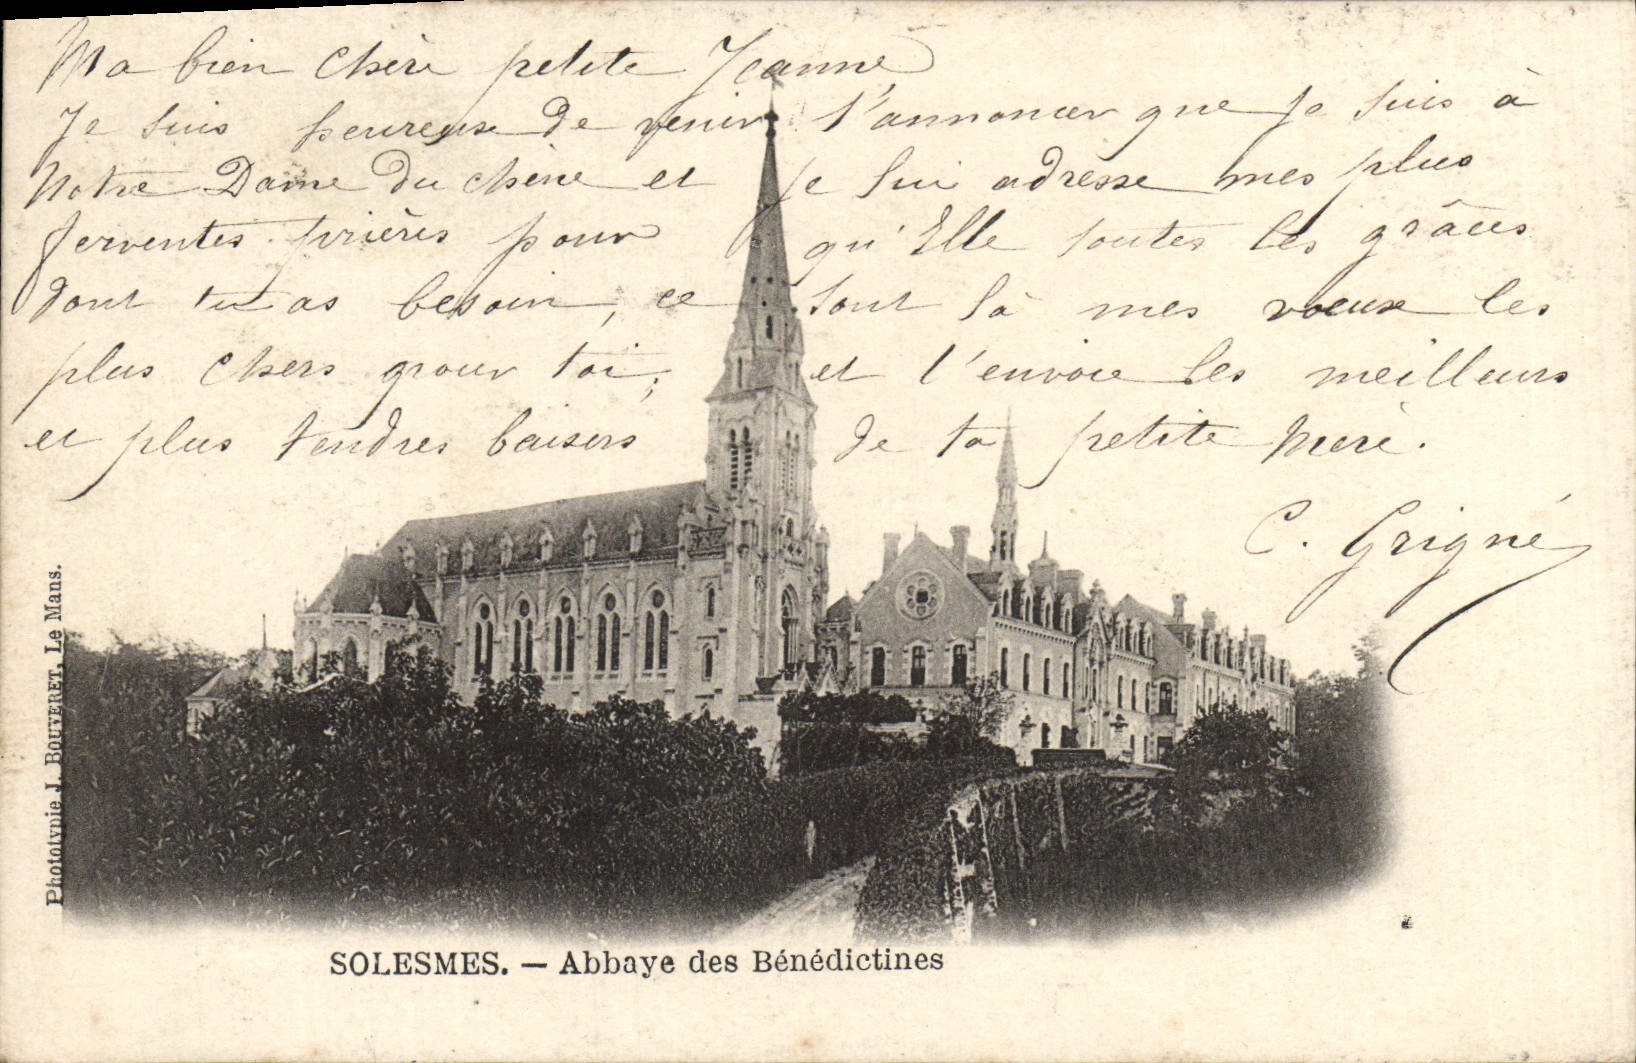 Ma bien chère petite Jeanne
Je suis heureuse de venir t'annoncer que je suis à
Notre Dame du chêne et je lui adresse mes plus
ferventes prières pour qu'Elle toutes les grâces
dont tu as besoin, ce sont là mes vœux les
plus chers pour toi; et t'envoie les meilleurs
et plus tendres baisers de ta petite mère.
C. Grigné
Phototypie J. BOUVERET, Le Mans.
SOLESMES. — Abbaye des Bénédictines